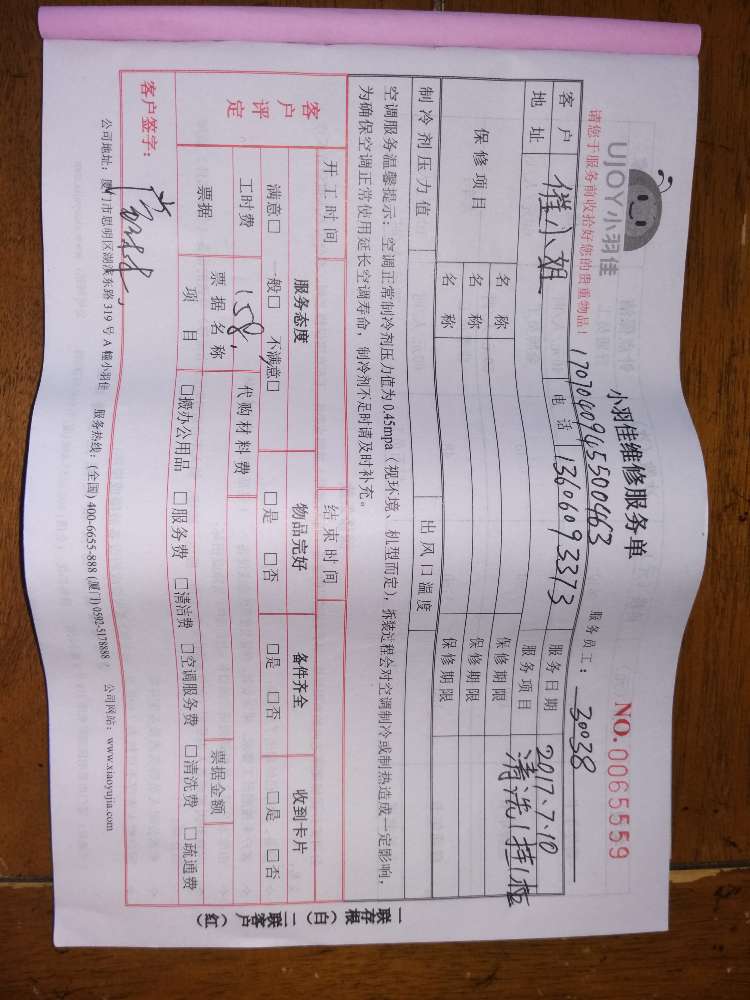 UJOY小羽佳
小羽佳维修服务单
NO. 0065559
请您于服务前收拾好您的贵重物品！
17070409455500463
服务员工： 30038
客户 催小姐 电话 13606093373 服务日期 2017.7.10
地址 服务项目 清洗1挂1柜
保修项目 名称 保修期限
名称 保修期限
名称 保修期限
制冷剂压力值 出风口温度
空调服务温馨提示：空调正常制冷剂压力值为0.45mpa（视环境、机型而定），拆装过程会对空调制冷或制热造成一定影响，
为确保空调正常使用延长空调寿命，制冷剂不足时请及时补充。
开工时间 结束时间
客户评定 服务态度 物品完好 备件齐全 收到卡片
满意□ 一般□ 不满意□ □是 □否 □是 □否 □是 □否
工时费 158. 代购材料费
票据 票据名称 票据金额
项目 □搬办公用品 □服务费 □清洁费 □空调服务费 □清洗费 □疏通费
客户签字：
公司地址：厦门市思明区湖滨东路319号A幢小羽佳 服务热线：(全国) 400-6655-888 (厦门) 0592-5178888 公司网站：www.xiaoyujia.com
一联存根（白） 二联客户（红）